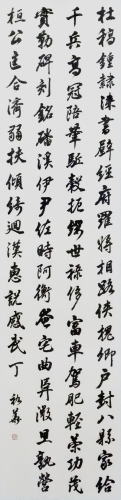 杜稿鍾隸漆書壁經府羅將相路俠槐卿戶封八縣家給
千兵高冠陪輦驅轂振纓世祿侈富車駕肥輕策功茂
實勒碑刻銘磻溪伊尹佐時阿衡奄宅曲阜微旦孰營
桓公匡合濟弱扶傾綺迴漢惠說感武丁